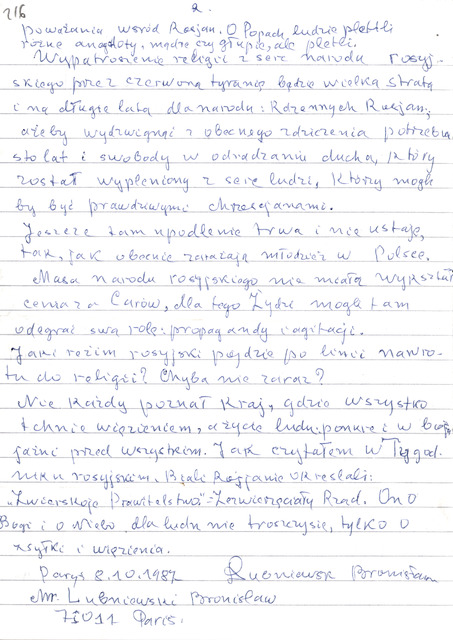 216
2.
poważania wśród Rosjan. O Popach ludzie pletlli
różne anegdoty, mądre czy głupie, ale pletli.
Wypatroszenie religii z serc narodu rosyj-
skiego przez czerwoną tyranię będzie wielką stratą
i na długie lata dla narodu: Rdzennych Rosjan;
ażeby wydźwignąć z obecnego zdziczenia potrzeba
sto lat i swobody w odradzaniu ducha, który
został wypleniony z serc ludzi, którzy mogli
by być prawdziwymi chrześcjanami.
Jeszcze tam upodlenie trwa i nie ustaje,
tak, jak obecnie zarażają młodzież w Polsce.
Masa narodu rosyjskiego nie miała wykształ
cenia za Carów, dla tego Żydzi mogli tam
odegrać swą rolę: propagandy i agitacji.
Jaki reżim rosyjski pójdzie po linii nawro-
tu do religii? Chyba nie zaraz?
Nie każdy poznał Kraj, gdzie wszystko
tchnie więzieniem, a życie ludzi ponure i w boj
jaźni przed wszystkim. Jak czytałem w Tygod
niku rosyjskim, Biali Rosjanie określali:
"Zwierskoje Prawitelstwo"-Zezwierzęciały Rząd. On o
Bogi i o Niebo dla ludu nie troszczy się, tylko o
zsyłki i więzienia.
Paryż 8.10.1987 Lubniewski Bronisław
Mr. Lubniewski Bronisław
75011 Paris.